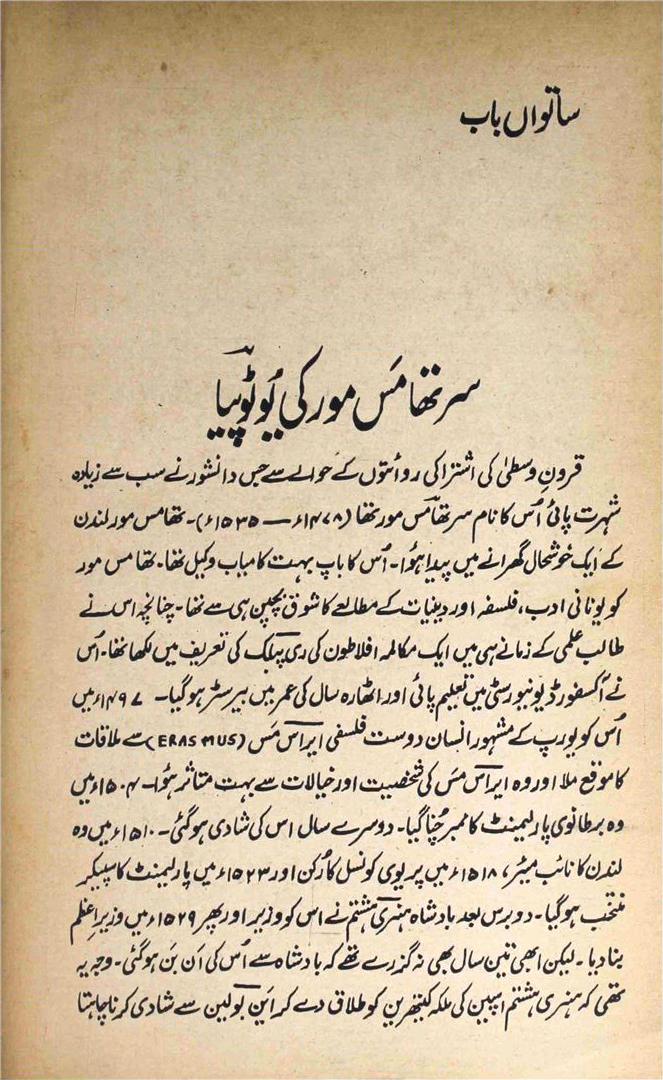 ساتواں باب
سر تھامس مور کی یُوٹوپیا
قرونِ وسطیٰ کی اشتراکی روائتوں کے حوالے سے جس دانشور نے سب سے زیادہ
شہرت پائی اُس کا نام سر تھامس مور تھا (۱۴۷۸ء — ۱۵۳۵ء)۔ تھامس مور لندن
کے ایک خوشحال گھرانے میں پیدا ہوا۔ اُس کا باپ بہت کامیاب وکیل تھا۔ تھامس مور
کو یونانی ادب، فلسفہ اور دینیات کے مطالعے کا شوق بچپن ہی سے تھا۔ چنانچہ اس نے
طالب علمی کے زمانے ہی میں ایک مکالمہ افلاطون کی ری پبلک کی تعریف میں لکھا تھا۔ اُس
نے آکسفورڈ یونیورسٹی میں تعلیم پائی اور اٹھارہ سال کی عمر میں بیرسٹر ہو گیا۔ ۱۴۹۷ء میں
اُس کو یورپ کے مشہور انسان دوست فلسفی ایراس مَس (ERASMUS) سے ملاقات
کا موقع ملا اور وہ ایراس مَس کی شخصیت اور خیالات سے بہت متاثر ہوا۔ ۱۵۰۴ء میں
وہ برطانوی پارلیمنٹ کا ممبر چُنا گیا۔ دوسرے سال اس کی شادی ہو گئی۔ ۱۵۱۰ء میں وہ
لندن کا نائب میئر، ۱۵۱۸ء میں پریوی کونسل کا رُکن اور ۱۵۲۳ء میں پارلیمنٹ کا سپیکر
منتخب ہو گیا۔ دو برس بعد بادشاہ ہنری ہشتم نے اس کو وزیر اور پھر ۱۵۲۹ء میں وزیرِ اعظم
بنا دیا۔ لیکن ابھی تین سال بھی نہ گزرے تھے کہ بادشاہ سے اُس کی اَن بَن ہو گئی۔ وجہ یہ
تھی کہ ہنری ہشتم اسپین کی ملکہ کیتھرین کو طلاق دے کر این بولین سے شادی کرنا چاہتا